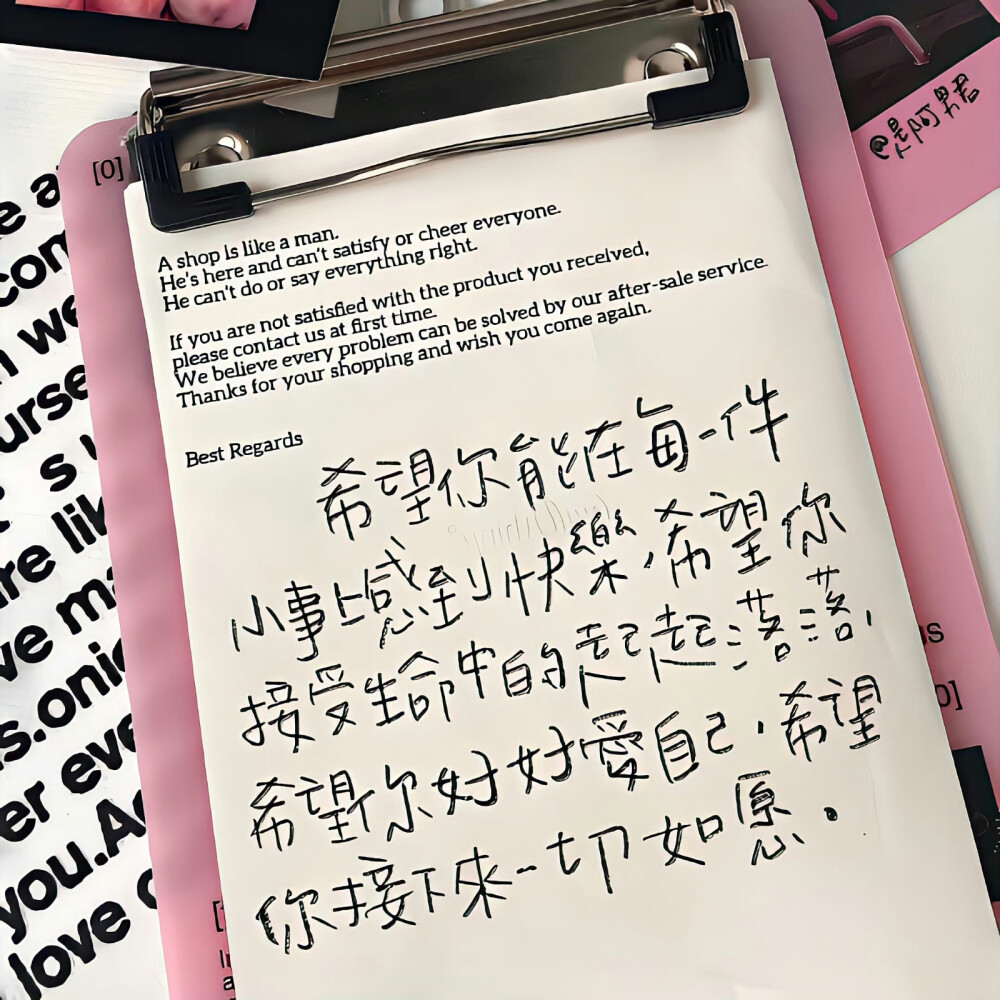 [0]
@是阿男君
A shop is like a man.
He's here and can't satisfy or cheer everyone.
He can't do or say everything right.
If you are not satisfied with the product you received,
please contact us at first time.
We believe every problem can be solved by our after-sale service.
Thanks for your shopping and wish you come again.
Best Regards
希望你能在每一件
小事上感到快樂,希望你
接受生命中的起起落落,
希望你好好愛自己,希望
你接下來一切如愿.
you.
love